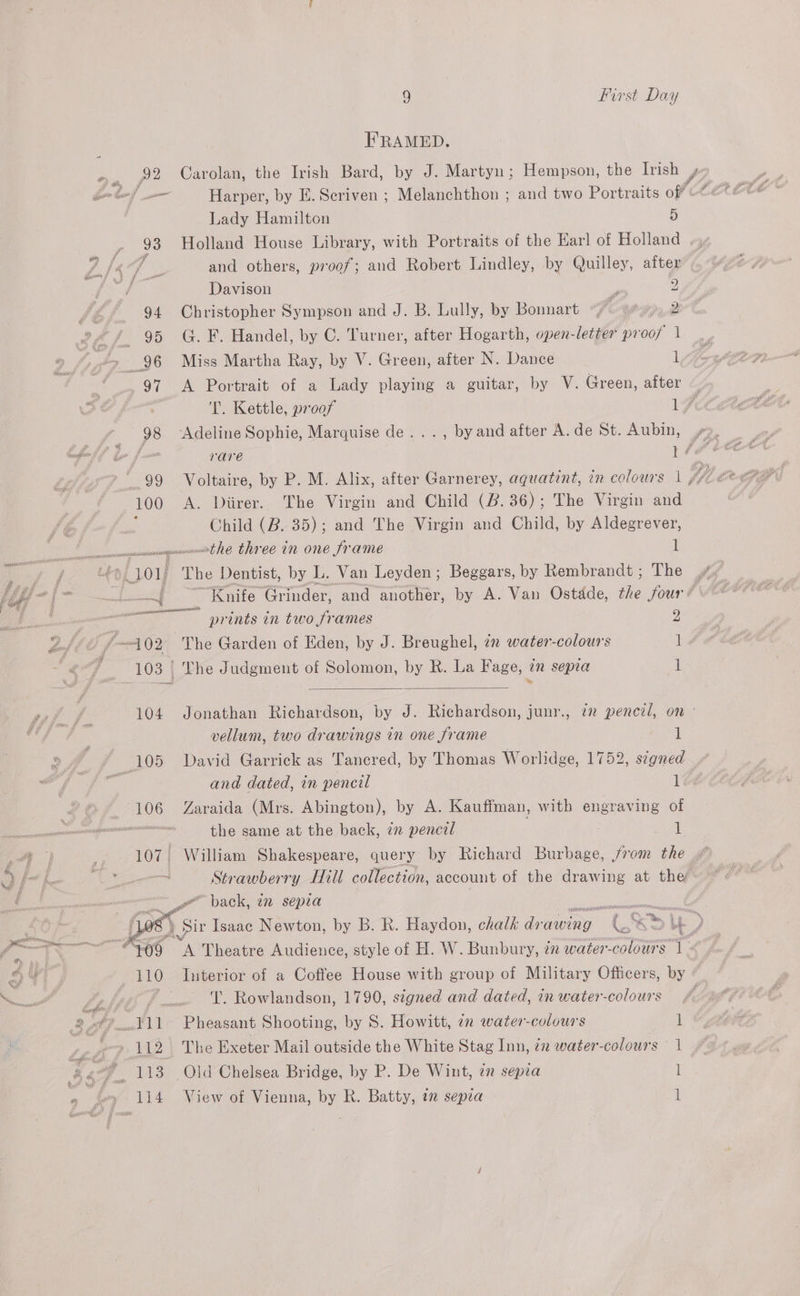 9 First Day
FRAMED.
92 Carolan, the Irish Bard, by J. Martyn; Hempson, the Irish
Harper, by E. Scriven ; Melanchthon ; and two Portraits of
Lady Hamilton 5
93 Holland House Library, with Portraits of the Earl of Holland
and others, proof; and Robert Lindley, by Quilley, after
Davison 2
94 Christopher Sympson and J. B. Lully, by Bonnart 2
95 G. F. Handel, by C. Turner, after Hogarth, open-letter proof 1
96 Miss Martha Ray, by V. Green, after N. Dance 1
97 A Portrait of a Lady playing a guitar, by V. Green, after
T. Kettle, proof 1
98 Adeline Sophie, Marquise de . . . , by and after A. de St. Aubin,
rare 1
99 Voltaire, by P. M. Alix, after Garnerey, aquatint, in colours 1
100 A. Dürer. The Virgin and Child (B. 36); The Virgin and
Child (B. 35); and The Virgin and Child, by Aldegrever,
the three in one frame 1
101 The Dentist, by L. Van Leyden; Beggars, by Rembrandt ; The
Knife Grinder, and another, by A. Van Ostade, the four
prints in two frames 2
102 The Garden of Eden, by J. Breughel, in water-colours 1
103 The Judgment of Solomon, by R. La Fage, in sepia 1
104 Jonathan Richardson, by J. Richardson, junr., in pencil, on
vellum, two drawings in one frame 1
105 David Garrick as Tancred, by Thomas Worlidge, 1752, signed
and dated, in pencil 1
106 Zaraida (Mrs. Abington), by A. Kauffman, with engraving of
the same at the back, in pencil 1
107 William Shakespeare, query by Richard Burbage, from the
Strawberry Hill collection, account of the drawing at the
back, in sepia
108 Sir Isaac Newton, by B. R. Haydon, chalk drawing
109 A Theatre Audience, style of H. W. Bunbury, in water-colours 1
110 Interior of a Coffee House with group of Military Officers, by
T. Rowlandson, 1790, signed and dated, in water-colours
111 Pheasant Shooting, by S. Howitt, in water-colours 1
112 The Exeter Mail outside the White Stag Inn, in water-colours 1
113 Old Chelsea Bridge, by P. De Wint, in sepia 1
114 View of Vienna, by R. Batty, in sepia 1